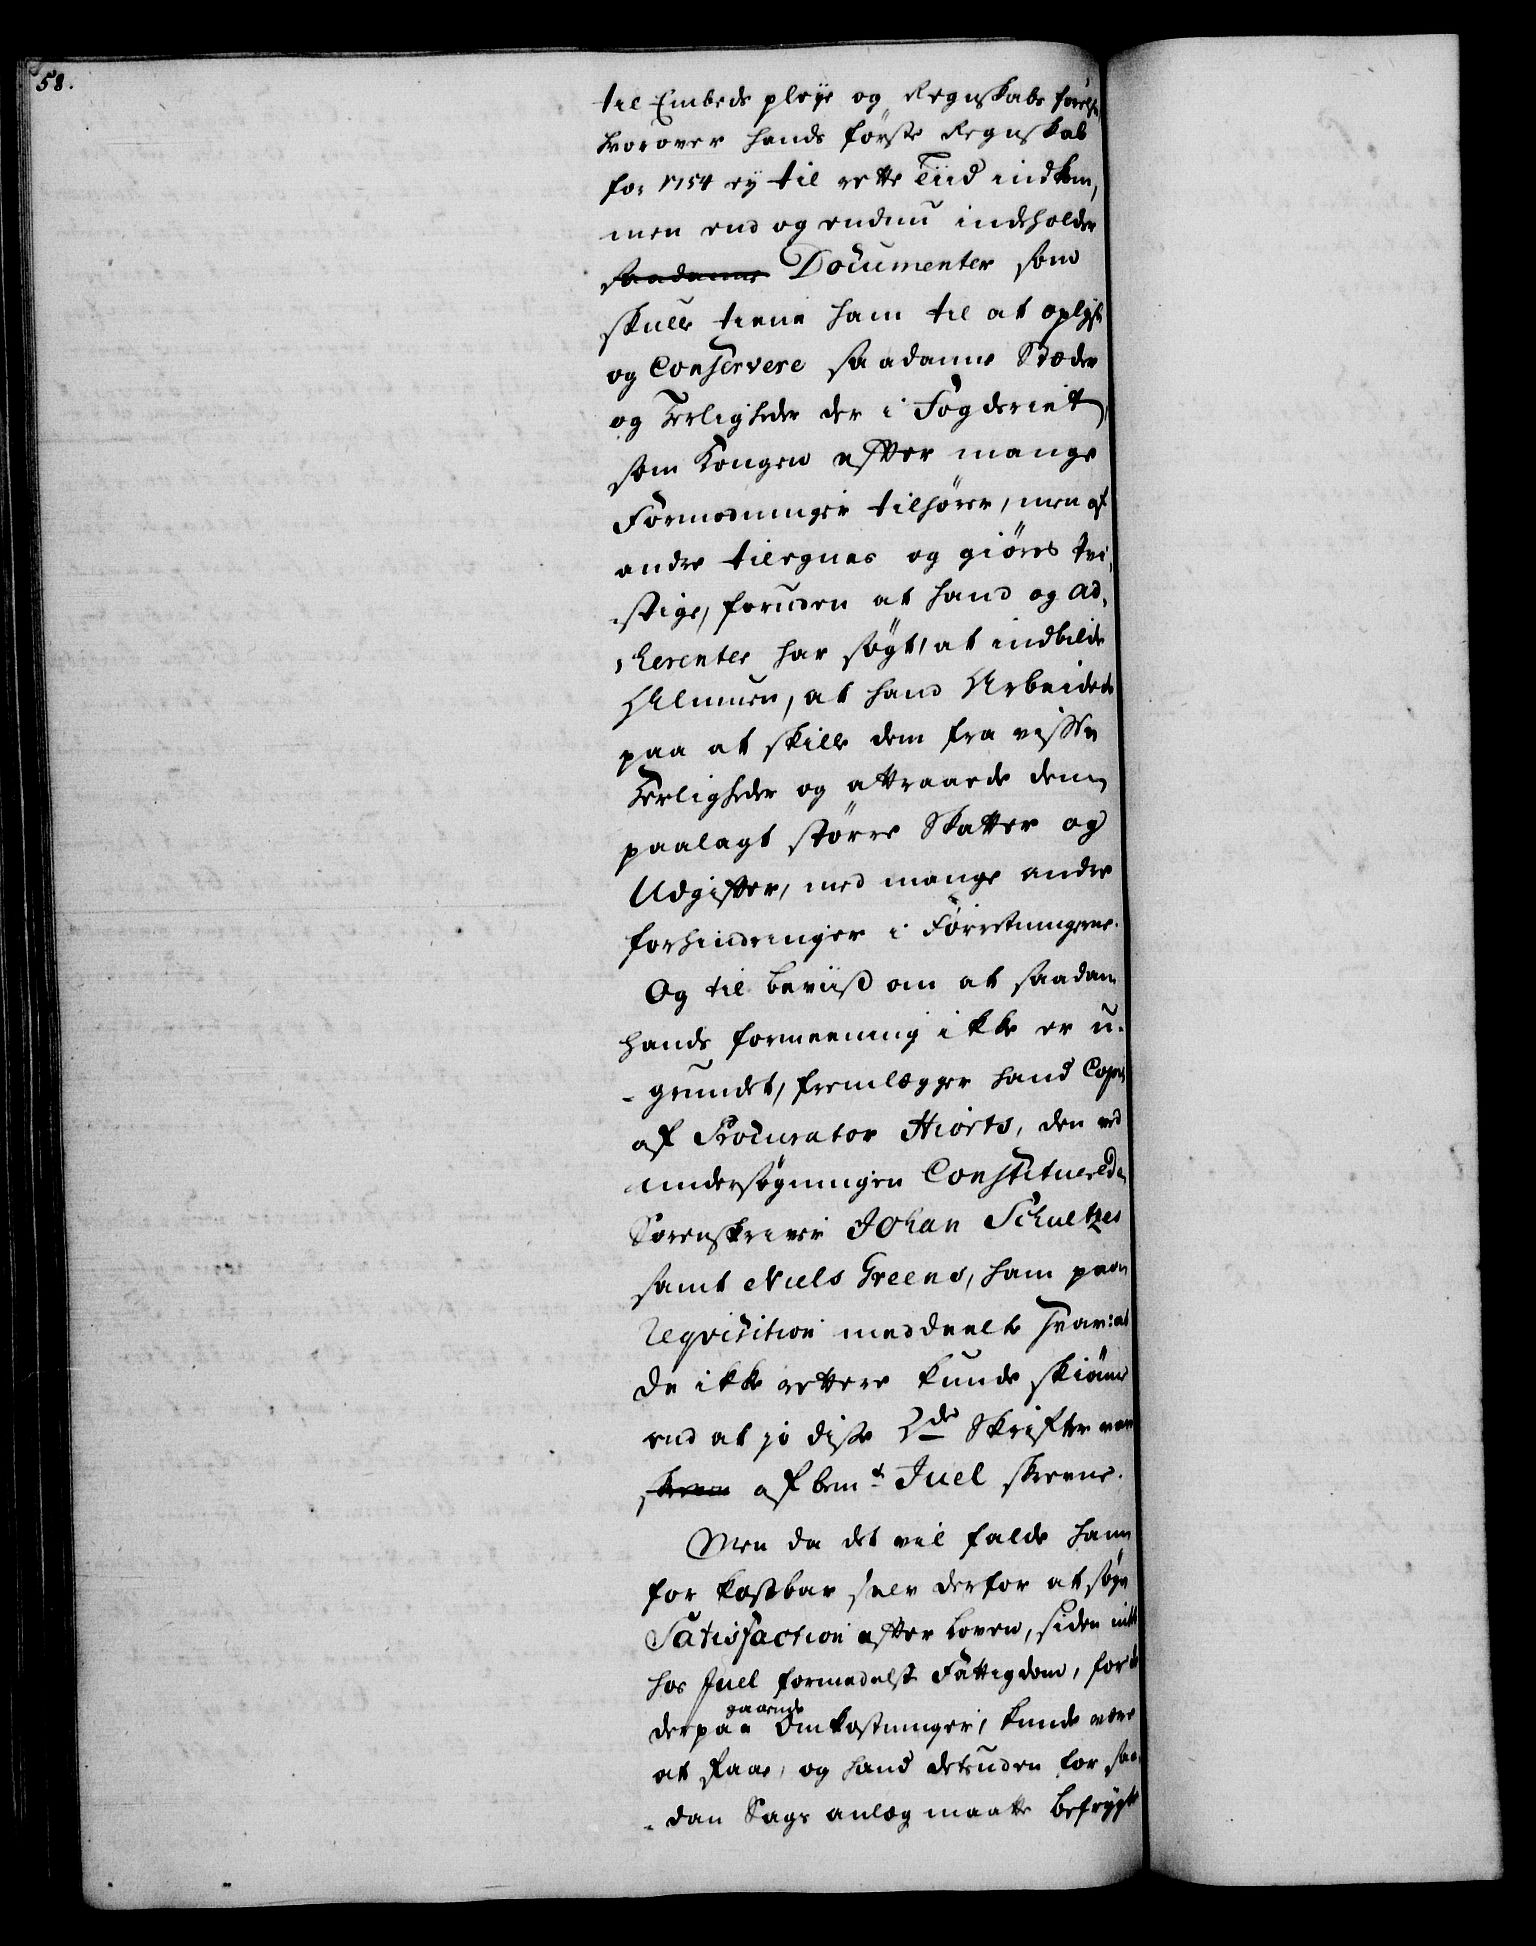 58.
til Embeds pleye og Regnskabs førelse
hvorover hands første Regnskab
for 1754 ey til rette Tiid indkom,
men end og endnu indeholder
saadanne Documenter som
skulle tiene ham til at oplyse
og Conservere saadanne Stæder
og Herligheder der i Fogderiet,
som Kongen efter mange
Formodninger tilhører, men af
andre tilegnes og giøres tvi,
-stige, foruden at hand og Ad,
,herenter har søgt, at indbilde
Almuen, at hand Arbeidede
paa at skille dem fra visse
Herligheder og attraaede dem
paalagt større Skatter og
Udgifter, med mange andre
forhindringer i Forretningerne.
Og til beviis om at saadan
hands formeening ikke er u-
-grundet, fremlægger hand Copie
af Procurator Hiorts, den ved
undersøgningen Constituerede
Sorenskriver Johan Schultzes
samt Niels Greens, ham paa
Reqvisition meddeelte Svar: at
de ikke rettere kunde skiønne
end at jo disse 2de Skrifter var
skreven af bemt Juel skrevne.
Men da det vil falde ham
for kostbar selv derfor at søge
Satisfaction efter Loven, siden intet
hos Juel formedelst Fattigdom, for de
derpaa gaaende Omkostninger, kunde være
at faae, og hand desuden for saa-
-dan Sags anlæg maatte befrygte